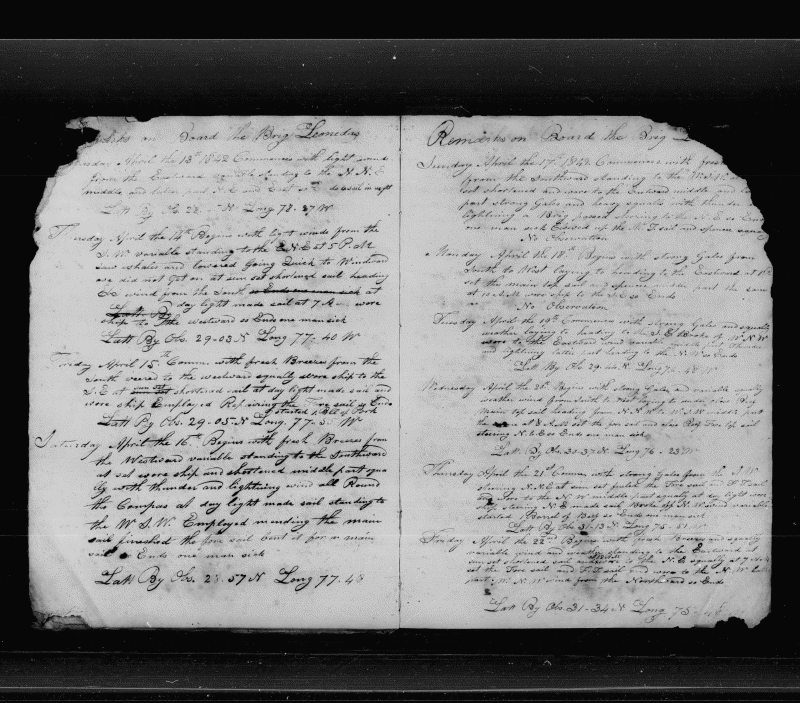 on Board the Brig Leonidas
April the 13th 1842 Commences with light winds
from the Eastward standing to the N N E
middle and latter part N E and East
Latt By Obs 28- N Long 78.37 W
Thursday April the 14th Begins with light winds from the
S.W variable standing to the E N E at 5 P.M
saw whales and lowered Going Quick to Windward
we did not get on at sun set shortened sail heading
wind from the South so Ends one man sick at
Latt. By day light made sail at 7 A M wore
ship to the Westward so Ends one man sick
Latt By Obs. 29-03 N Long 77.40 W
Friday April 15th Comm. with fresh Breezes from the
South veered to the westward squally wore ship to the
S.E at sun set shortened sail at day light made sail and
wore ship Employed Repairing the Fore sail so Ends
started 1 bbl of Pork
Latt By Obs. 29-05 N Long 77-5 W
Saturday April the 16th Begins with fresh Breezes from
the Westward variable standing to the Southward
at sat wore ship and shortened middle part squa
lly with thunder and lightning wind all Round
the Compas at day light made sail standing to
the W S.W. Employed mending the main
sail finished the fore sail bent it for a main
sail so Ends one man sick
Latt By Obs. 28-57 N Long 77.48
Remarks on Board the Brig
Sunday April the 17th 1842 Commences with fresh
from the Southward standing to the
set shortened and wore to the Eastward middle and
part strong Gales and heavy squalls with thunder
lightning a Brig passed steering to the N.E so Ends
one man sick
No Observation
Monday April the 18th Begins with strong Gales from
South to West laying to heading to the Eastward at
set the main top sail and middle part the same
at 10 A.M wore ship to the S.E so Ends
No Observation
Tuesday April the 19th Commences with strong Gales and squally
weather laying to heading to the S.E W N W
wore to the Eastward wind variable
and lightning latter part heading to the N.W so Ends
Latt By Obs. 29-44 N. Long 76-48 W
Wednesday April the 20th Begins with strong Gales and variable squally
weather wind from South to West laying to under close Reef
Main top sail heading from N.N W to W.S.W middle part
the same at 8 A.M set the fore sail and close Reef Fore top sail
steering N.E.E so Ends one man sick
Latt. By Obs 31-37 N Long 76-23 W
Thursday April the 21st Comm. with strong Gales from the S W
steering N.N.E at sun set furled the Fore sail and F. T sail
and wore to the N.W middle part squally at day light wore
ship steering N.E made sail Broke off N.W wind variable
started 1 Barrel of Beef so Ends one man sick
Latt By Obs 31-13 N Long 75-51 W
Friday April the 22nd Begins with fresh Breeze and squally
variable wind and weather standing to the Eastward at
sun set shortened sail and wore to the N.E squally at 7
set the Fore sail and F. T sail and wore to the N.W
part W. N. W wind from the Northward so Ends
Latt By Obs. 31-34 N Long 75-